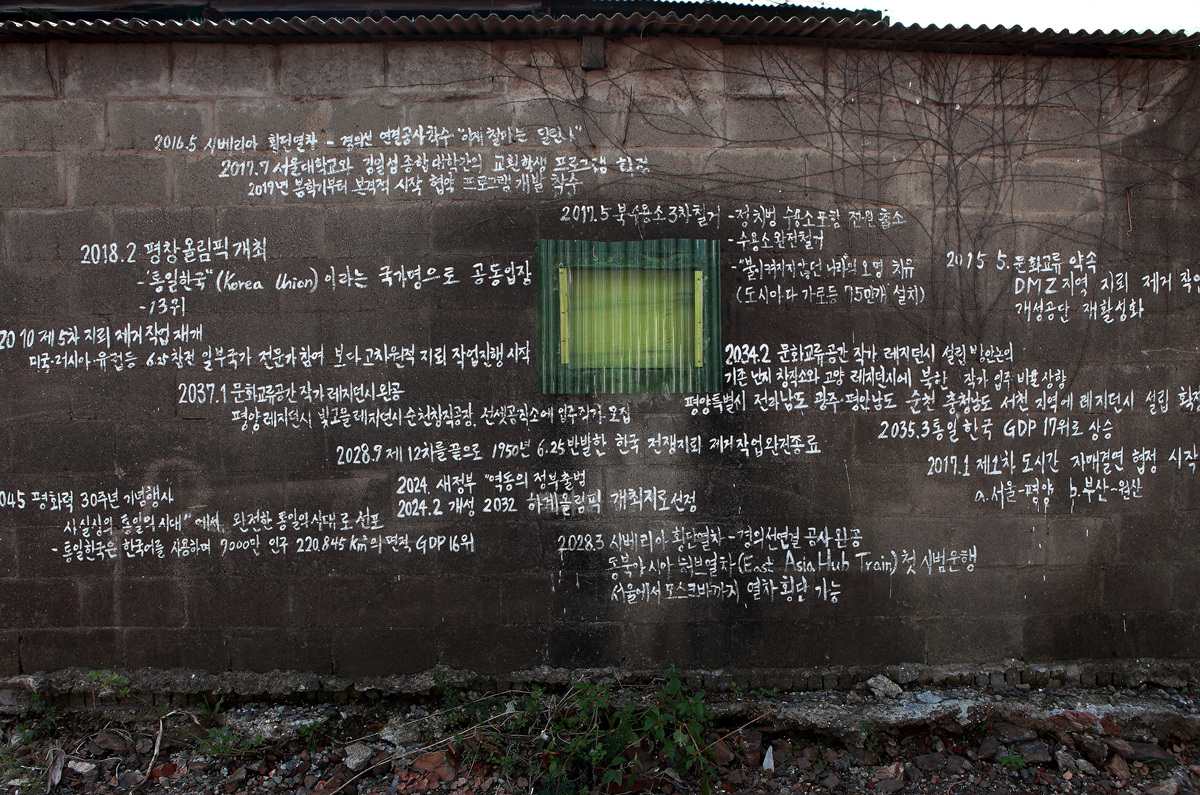 2016.5 시베리아 횡단열차 - 경의선 연결공사 착수 "이제 찾아는 달린다"
2017.7 서울대학교와 김일성종합대학간의 교환학생 프로그램 확정
2019년 봄학기부터 본격적 시작 협약 프로그램 개발 착수
2017.5 북수용소 3차철거 - 정치범 수용소포함 전원 출소
- 수용소완전철거
- "불이켜지지 않던 나라"의 오명 치유
(도시마다 가로등 75만개 설치)
2018.2 평창올림픽개최
- "통일한국" (Korea Union) 이라는 국가명으로 공동입장
- 13위
2015 5. 문화교류 약속
DMZ지역 지뢰 제거 작업
개성공단 재활성화
20 10 제 5차 지뢰 제거작업 재개
미국·러시아·유럽등 6.25참전 일부국가 전문가참여 보다 고차원적 지뢰 작업진행 시작
2034.2 문화교류공간 작가 레지던시 설립 방안논의
기존 난지 창작소와 고양 레지던시에 북한 작가 입주 비율 상향
평양특별시 전라남도 광주·평안남도 순천 충청남도 서천 지역에 레지던시 설립 확정
2037.1 문화교류공간 작가 레지던시완공
평양레지던시 빛고을 레지던시 순천창작공장, 선셋공작소에 입주작가 모집
2035.3 통일한국 GDP 17위로 상승
2028.9 제 12차를 끝으로 1950년 6.25 반발한 한국 전쟁지뢰 제거작업완전종료
2017.1 제1차 도시간 자매결연 협정 시작
a. 서울-평양 b. 부산-원산
2024. 새정부 "역동의 정부출범
2024.2 개성 2032 하계올림픽 개최지로선정
045 평화력 30주년 기념행사
사실상의 통일의시대" 에서, 완전한 통일의시대로 선포
- 통일한국은 한국어를 사용하며 7000만 인구 220.845 Km²의 면적, GDP 16위
2028.3 시베리아 횡단열차 - 경의선연결 공사 완공
동북아시아 허브열차 (East Asia Hub Train) 첫 시범운행
서울에서 모스크바까지 열차 횡단 가능